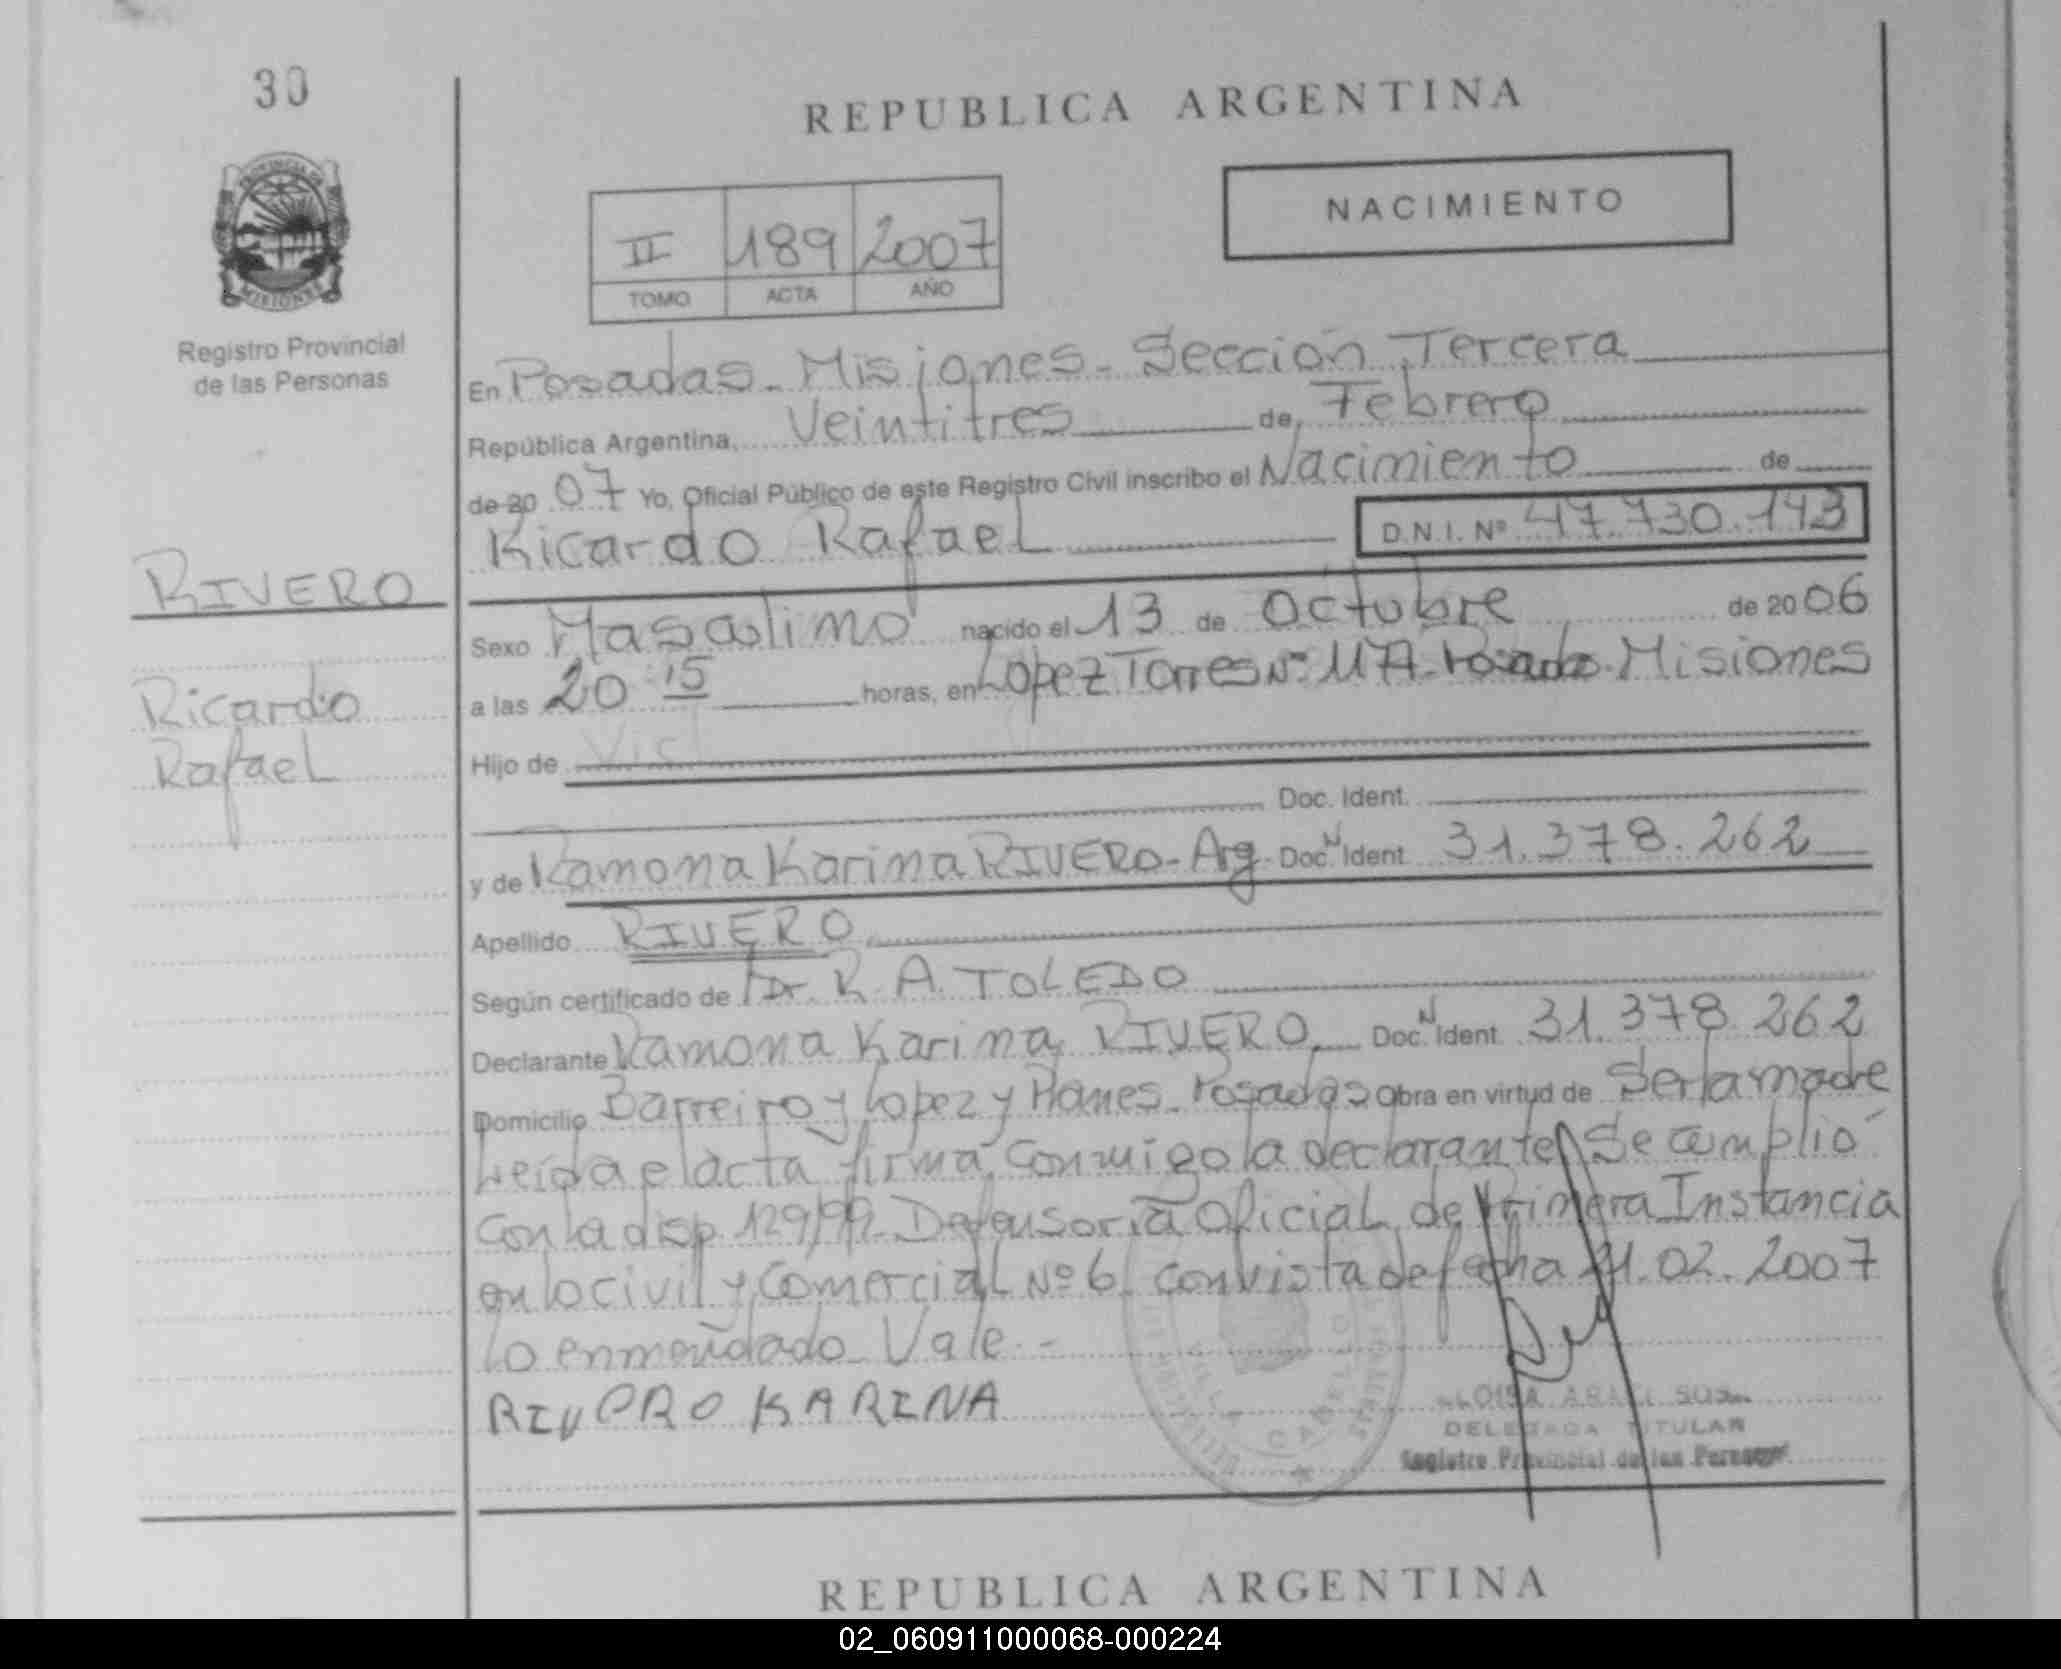 30
REPUBLICA ARGENTINA
PROVINCIA DE
MISIONES
Registro Provincial
de las Personas
II 189 2007
TOMO ACTA AÑO
NACIMIENTO
En Posadas - Misiones - Sección Tercera
República Argentina, Veintitres de Febrero
de 20 07 Yo, Oficial Público de este Registro Civil inscribo el Nacimiento de
Ricardo Rafael D.N.I. Nº 47.730.143
RIVERO
Ricardo
Rafael
Sexo Masculino nacido el 13 de Octubre de 20 06
a las 20 15 horas, en Lopez Torres Nº Posadas Misiones
Hijo de
Doc. Ident.
y de Ramona Karina RIVERO - Arg. Doc. N Ident. 31.378.262
Apellido RIVERO
Según certificado de Dr. R. A. TOLEDO
Declarante Ramona Karina RIVERO Doc. N Ident. 31.378.262
Domicilio Barreiro y Lopez y Planes - Posadas obra en virtud de Ser la madre
Leida el acta firma conmigo la declarante Se cumplió
con la disp. 129/99 - Defensoria Oficial de Primera Instancia
en lo civil y Comercial Nº 6 con vista de fecha 21.02.2007
Lo enmendado Vale -
RIVERO KARINA
DELEGADA TITULAR
Registro Provincial de las Personas
REPUBLICA ARGENTINA
02_060911000068-000224